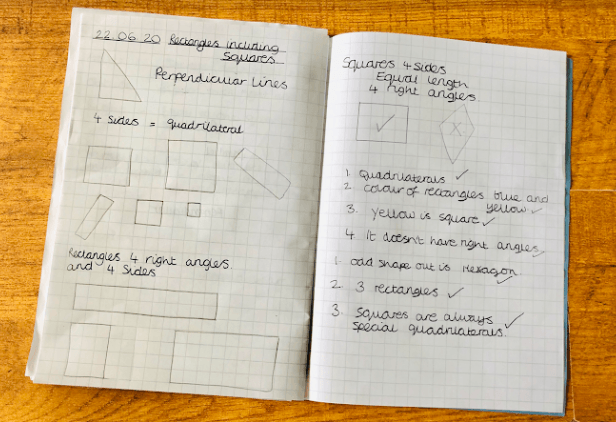 22.06.20 Rectangles including
Squares
Perpendicular Lines
4 sides = quadrilateral
Rectangles 4 right angles.
and 4 sides
Squares 4 sides
Equal length
4 right angles
1. Quadrilaterals ✓
2 colour of rectangles blue and
yellow ✓
3. yellow is square ✓
4. It doesn't have right angles ✓
1. odd shape out is Hexagon. ✓
2. 3 rectangles ✓
3. Squares are always ✓
special quadrilaterals.